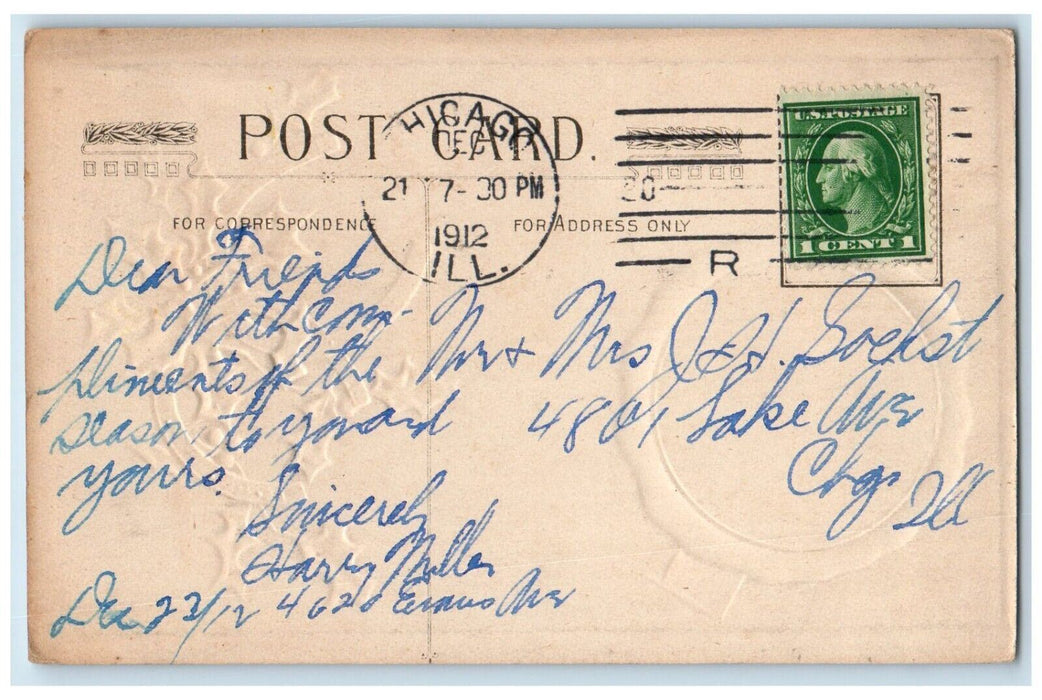 POST CARD.
CHICAGO
DEC
21 7-30 PM
1912
ILL.
R
U.S. POSTAGE
1 CENT 1
FOR CORRESPONDENCE
FOR ADDRESS ONLY
Dear Friends
With com-
pliments of the
season to you and
yours.
Sincerely
Harry Miller
Dec 22/12 4620 Evans Ave
Mr & Mrs J. H.
4801 Lake Ave
Chg.
Ill